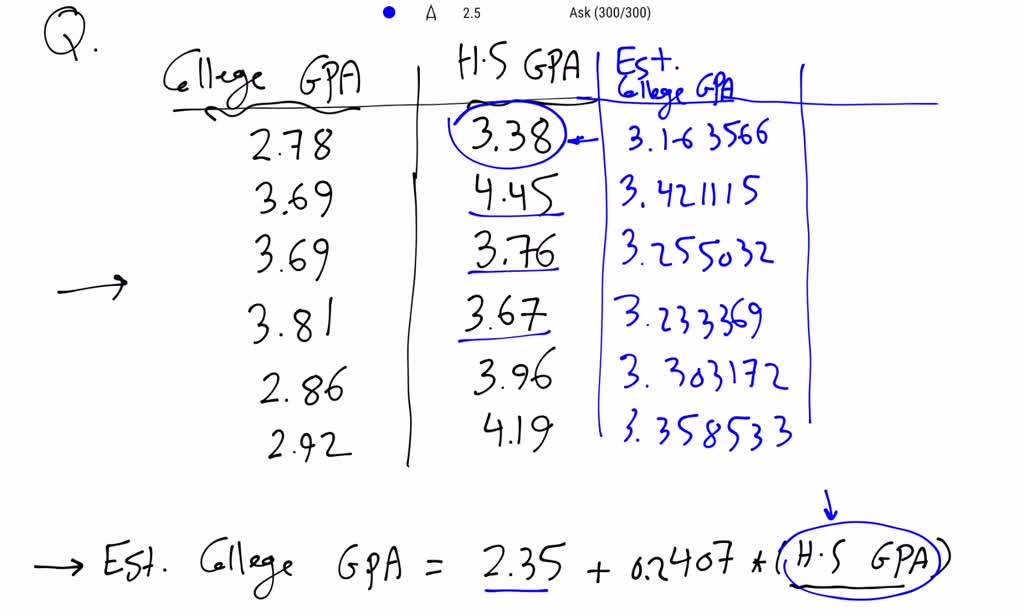 A 2.5 Ask (300/300)
Q.
College GPA H.S GPA Est. College GPA
2.78 3.38 3.163566
3.69 4.45 3.421115
3.69 3.76 3.255032
3.81 3.67 3.233369
2.86 3.96 3.303172
2.92 4.19 3.358533
→ Est. College GPA = 2.35 + 0.2407 * (H.S GPA)